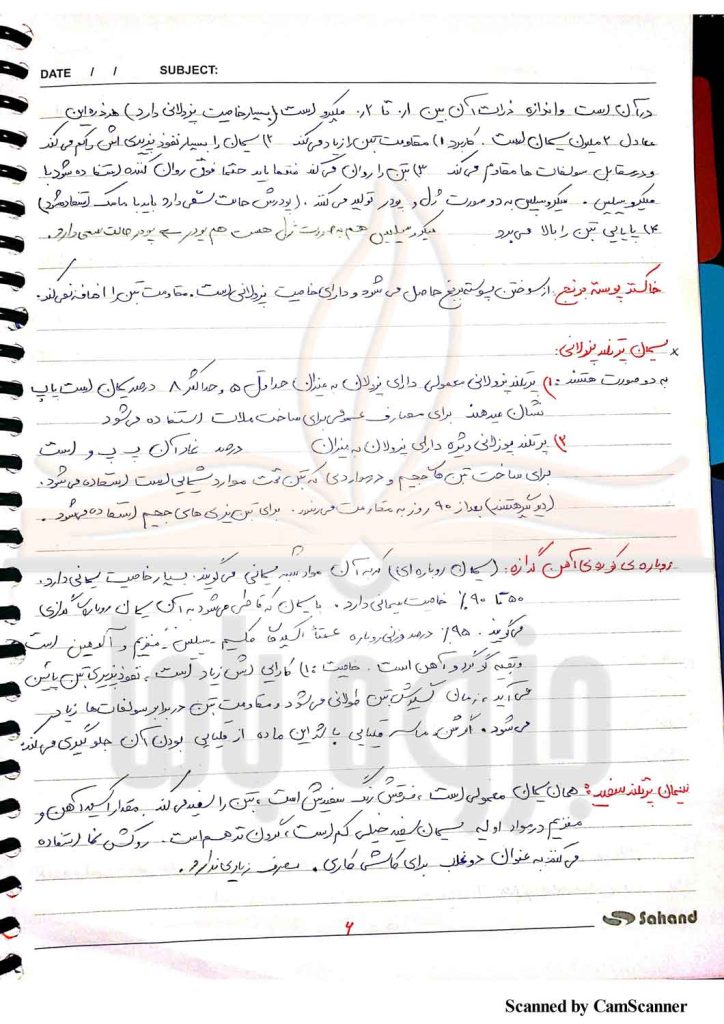 DATE / / SUBJECT:
در آن است و اندازه ذرات آن بین ۰/۱ تا ۰/۲ میکرو است (بسیار خاصیت پوزولانی دارد) هر ذره این
معادل ۲ میلیون سیمان است. کاربرد ۱) مقاومت بتن را زیاد می کند ۲) سیمان را بسیار نفوذپذیری اش را کم می کند
و در مقابل سولفات ها مقاوم می کند ۳) بتن را روان می کند منتها باید حتما فوق روان کننده استفاده شود با
میکروسیلیس. میکروسیلیس به دو صورت ژل و پودر تولید می کنند. (پودرش حالت سمی دارد باید با ماسک استفاده شود)
۴) پایایی بتن را بالا می برد میکروسیلیس هم به صورت ژل هست هم پودر پودر حالت سمی دارد.
خاکستر پوسته برنج: از سوختن پوسته برنج حاصل می شود و دارای خاصیت پوزولانی است. مقاومت بتن را اضافه نمی کند.
× سیمان پرتلند پوزولانی:
به دو صورت هستند: ۱) پرتلند پوزولانی معمولی دارای پوزولان به میزان حداقل ۵ و حداکثر درصد سیمان است با پ پ
نشان میدهند برای مصارف عمومی برای ساخت ملات استفاده می شود
۲) پرتلند پوزولانی ویژه دارای پوزولان به میزان درصد نماد آن پ پ و است
برای ساخت بتن های حجیم و در مواردی که بتن تحت مواد شیمیایی است استفاده می شود.
(دیرگیر هستند) بعد از ۹۰ روز به مقاومت می رسند. برای بتن ریزی های حجیم استفاده میشود.
روباره ی کوره ی آهن گدازه: (سیمان روباره ای) که به آن مواد شبه سیمانی می گویند. بسیار خاصیت سیمانی دارد.
۵۰ تا ۹۰٪ خاصیت سیمانی دارد. با سیمان که قاطی می شود به آن سیمان روباره گدازی
می گویند. ۹۵٪ درصد وزنی روباره عمدتاً اکسیدهای کلسیم - سیلیس - منیزیم و آلومین است
و بقیه گوگرد و آهن است. خاصیت: ۱) کارایی اش زیاد است، نفوذپذیری بتن پایین
می آید، زمان گیرش بتن طولانی می شود و مقاومت بتن در برابر سولفات ها زیاد
می شود. واکنش ماسه قلیایی با این ماده از قلیایی بودن آن جلوگیری می کند.
سیمان پرتلند سفید: همان سیمان معمولی است، فرقش رنگ سفیدش است، بتن را سفید می کند. مقدار اکسید آهن و
منیزیم در مواد اولیه سیمان سفید خیلی کم است، گران تر هم است. روکش نما استفاده
می کنند به عنوان دوغاب برای کاشی کاری. مصرف زیادی ندارد.
Sahand
۶
جزوه باما
Scanned by CamScanner